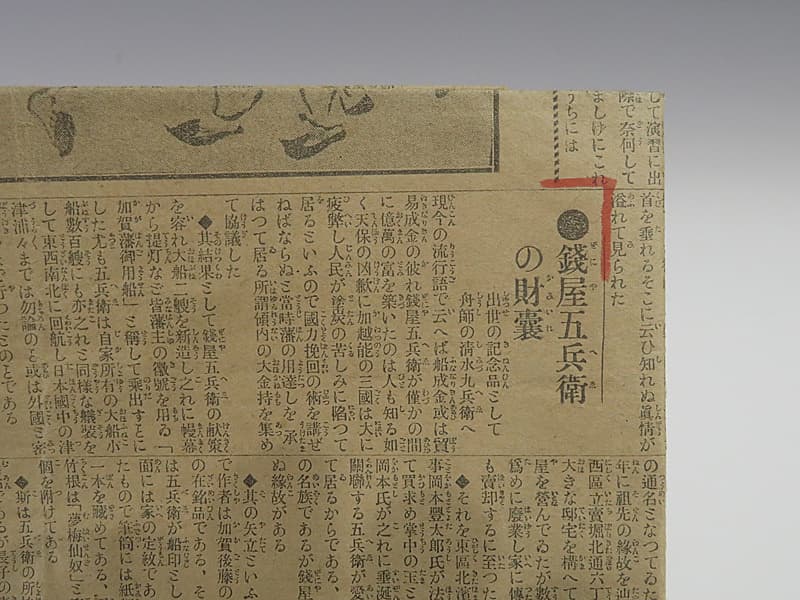 して演習に出
際で奈何して
ましけにこれ
うちには
首を垂れるそこに云ひ知れぬ眞情が
溢れて見られた
錢屋五兵衛
の財嚢
出世の記念品として
舟師の清水九兵衛へ
現今の流行語で云へば船成金或は貿
易成金の彼れ錢屋五兵衛が僅かの間
に億萬の富を築いたのは人も知る如
く天保の凶歉に加越能の三國は大に
疲弊し人民が塗炭の苦しみに陥つて
居るといふので國力挽回の術を講ぜ
ねばならぬと當時藩の用達しを承
はつて居る所謂領内の大金持を集め
て協議した
◆其結果として錢屋五兵衛の献策
を容れ大船二艘を新造し之れに幔幕
から提灯など皆藩主の徽號を用る「
加賀藩御用船」と稱して乘出すとに
した尤も五兵衛は自家所有の大船小
船數百艘にも亦之れと同樣な艤裝を
して東西南北に回航し日本國中の津
津浦々までは勿論のと或は外國と密
行つたとのとである
の通名となつてゐた
年に祖先の緣故を辿
西區立賣堀北通六丁
大きな邸宅を構へて
屋を營んでゐたが數
爲めに廢業し家に傳
も賣却するに至つた
◆それを東區北濱
事岡本豐太郎氏が法
て買求め掌中の玉と
岡本氏が之れに垂涎
關聯する五兵衛が愛
て居るからである、
の名族であるが錢屋
ぬ緣故がある
◆其の矢立といふ
で作者は加賀後藤の
の在銘品である、そ
は五兵衛が船印とし
面には家の定紋であ
たもので筆筒には紙
一本を藏めてある、
竹根は「夢梅仙奴」と
個を附けてある
◆斯は五兵衛の所